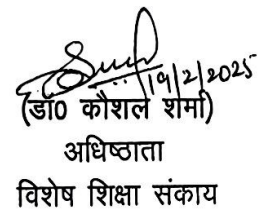 19/2/2025
(डॉ0 कौशल शर्मा)
अधिष्ठाता
विशेष शिक्षा संकाय